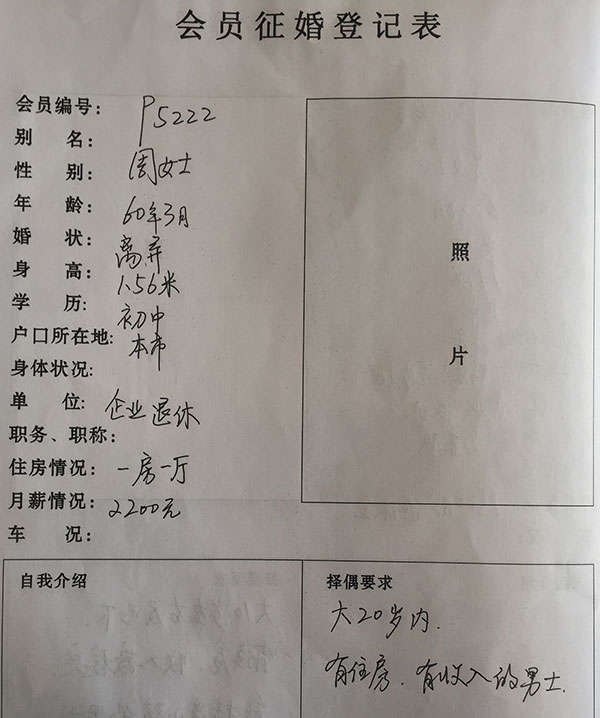 会员征婚登记表
会员编号: P5222
别 名:
性 别: 周女士
年 龄: 60年3月
婚 状: 离弃
身 高: 1.56米
学 历: 初中
户口所在地: 本市
身体状况:
单 位: 企业退休
职务、职称:
住房情况: 一房一厅
月薪情况: 2200元
车 况:
照
片
自我介绍
择偶要求
大20岁内.
有住房.有收入的男士.